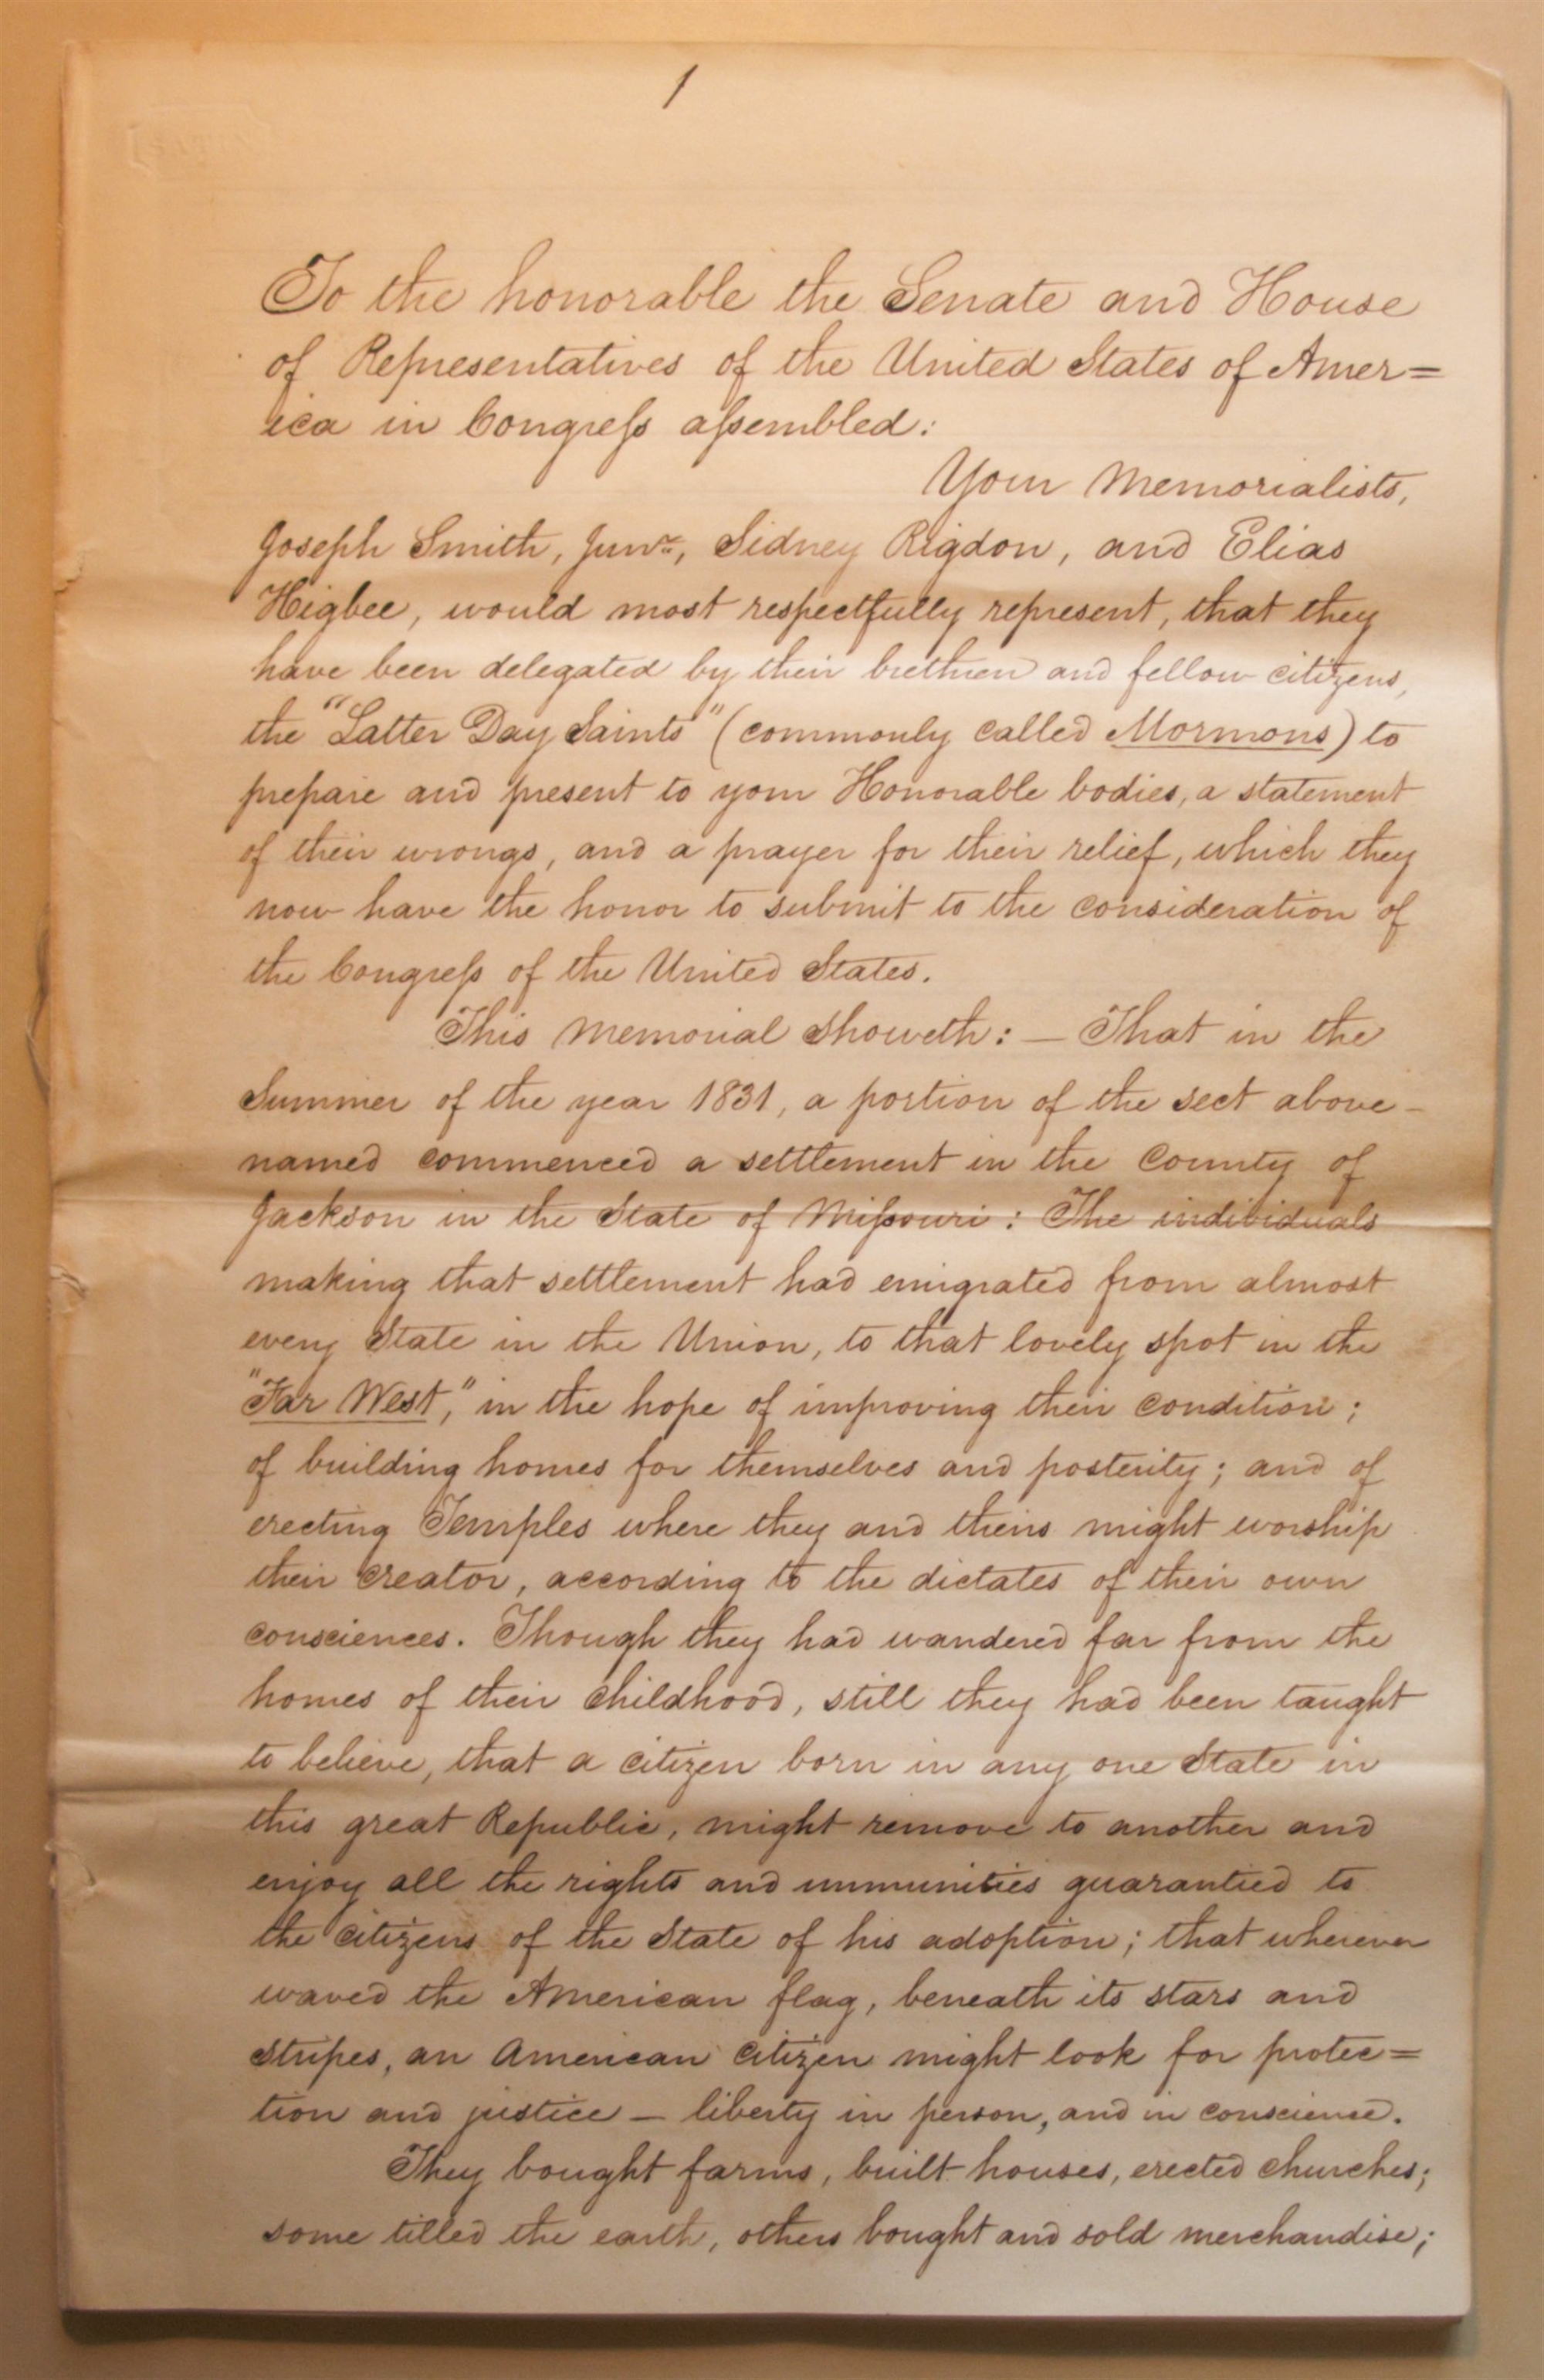 1
To the honorable the Senate and House
of Representatives of the United States of Amer=
ica in Congreſs aſsembled:
Your Memorialists,
Joseph Smith, Junr., Sidney Rigdon, and Elias
Higbee, would most respectfully represent, that they
have been delegated by their brethren and fellow citizens,
the "Latter Day Saints" (commonly called Mormons) to
prepare and present to your Honorable bodies, a statement
of their wrongs, and a prayer for their relief, which they
now have the honor to submit to the consideration of
the Congreſs of the United States.
This Memorial showeth: — That in the
Summer of the year 1831, a portion of the sect above-
named commenced a settlement in the County of
Jackson in the State of Miſsouri: The individuals
making that settlement had emigrated from almost
every State in the Union, to that lovely spot in the
"Far West," in the hope of improving their condition;
of building homes for themselves and posterity; and of
erecting Temples where they and theirs might worship
their Creator, according to the dictates of their own
consciences. Though they had wandered far from the
homes of their childhood, still they had been taught
to believe, that a citizen born in any one State in
this great Republic, might remove to another and
enjoy all the rights and immunities guarantied to
the citizens of the State of his adoption; that wherever
waved the American flag, beneath its stars and
stripes, an American citizen might look for protec=
tion and justice — liberty in person, and in conscience.
They bought farms, built houses, erected churches;
some tilled the earth, others bought and sold merchandise;